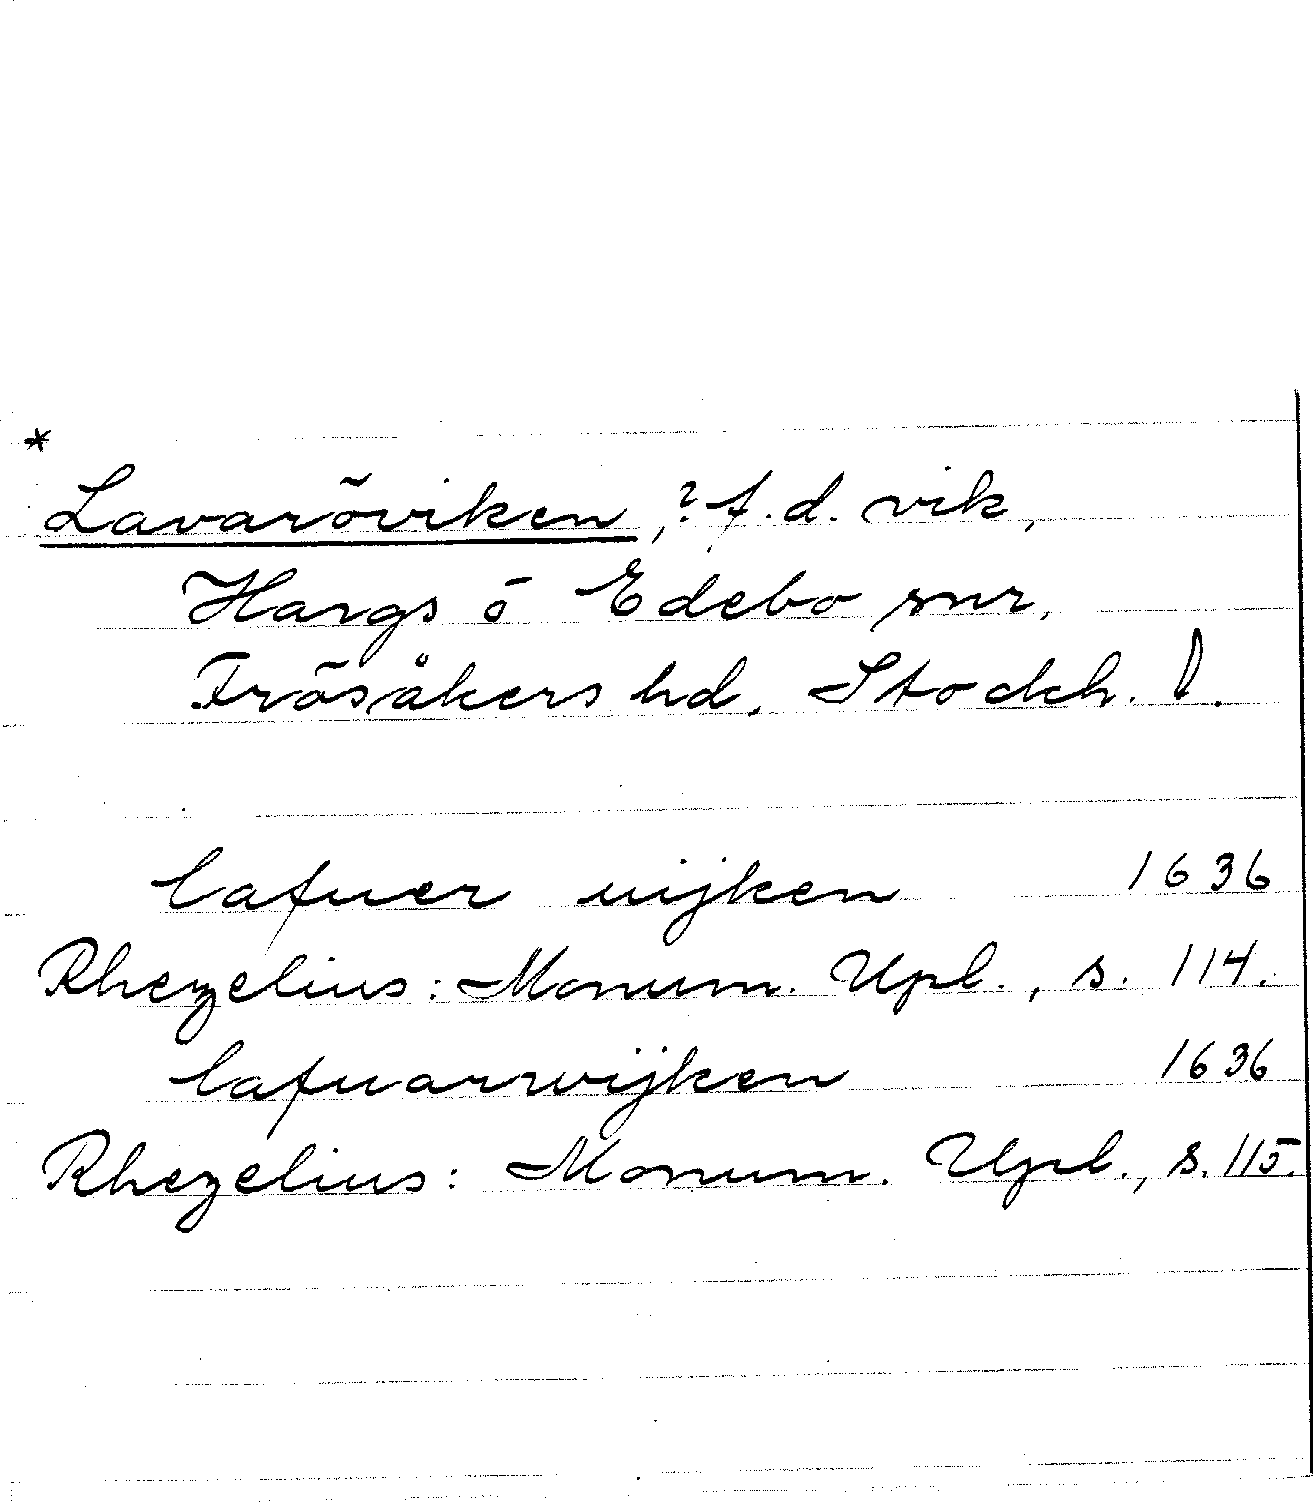 *
Lavaröviken, ? f.d. vik,
Hargs o Edebo snr,
Frösåkers hd. Stockh. l.
lafuer uijken 1636
Rhezelius: Monum. Upl., s. 114.
lafuarwijken 1636
Rhezelius: Monum. Upl., s. 115.